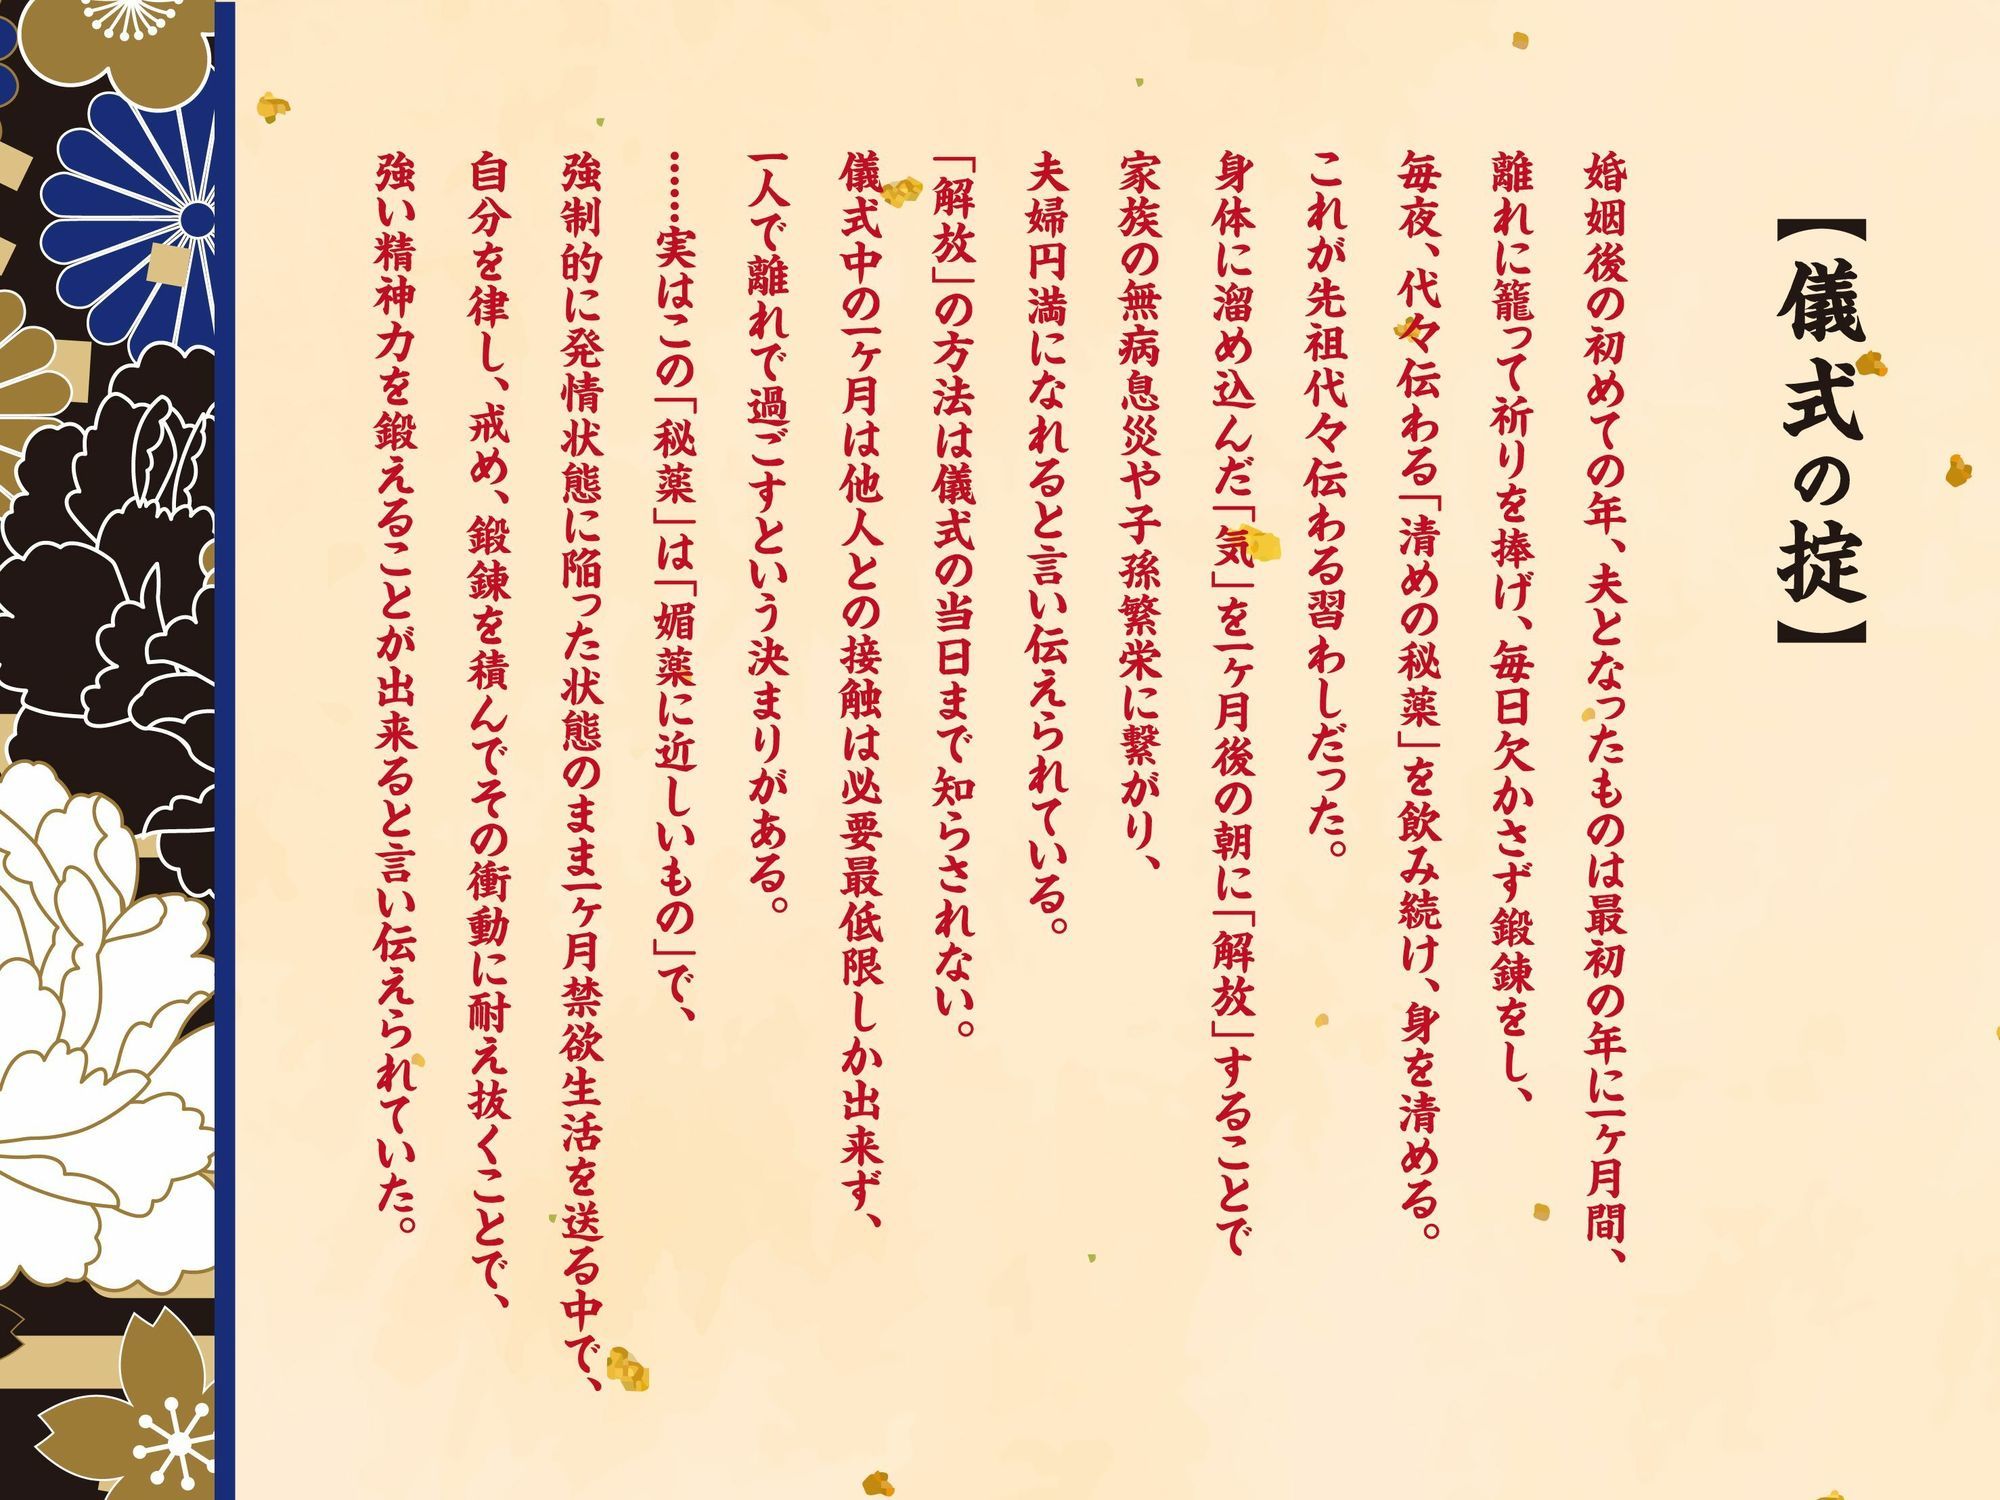 【儀式の掟】
婚姻後の初めての年、夫となったものは最初の年に一ヶ月間、
離れに籠って祈りを捧げ、毎日欠かさず鍛錬をし、
毎夜、代々伝わる「清めの秘薬」を飲み続け、身を清める。
これが先祖代々伝わる習わしだった。
身体に溜め込んだ「気」を一ヶ月後の朝に「解放」することで
家族の無病息災や子孫繁栄に繋がり、
夫婦円満になれると言い伝えられている。
「解放」の方法は儀式の当日まで知らされない。
儀式中の一ヶ月は他人との接触は必要最低限しか出来ず、
一人で離れで過ごすという決まりがある。
……実はこの「秘薬」は「媚薬に近しいもの」で、
強制的に発情状態に陥った状態のまま一ヶ月禁欲生活を送る中で、
自分を律し、戒め、鍛錬を積んでその衝動に耐え抜くことで、
強い精神力を鍛えることが出来ると言い伝えられていた。